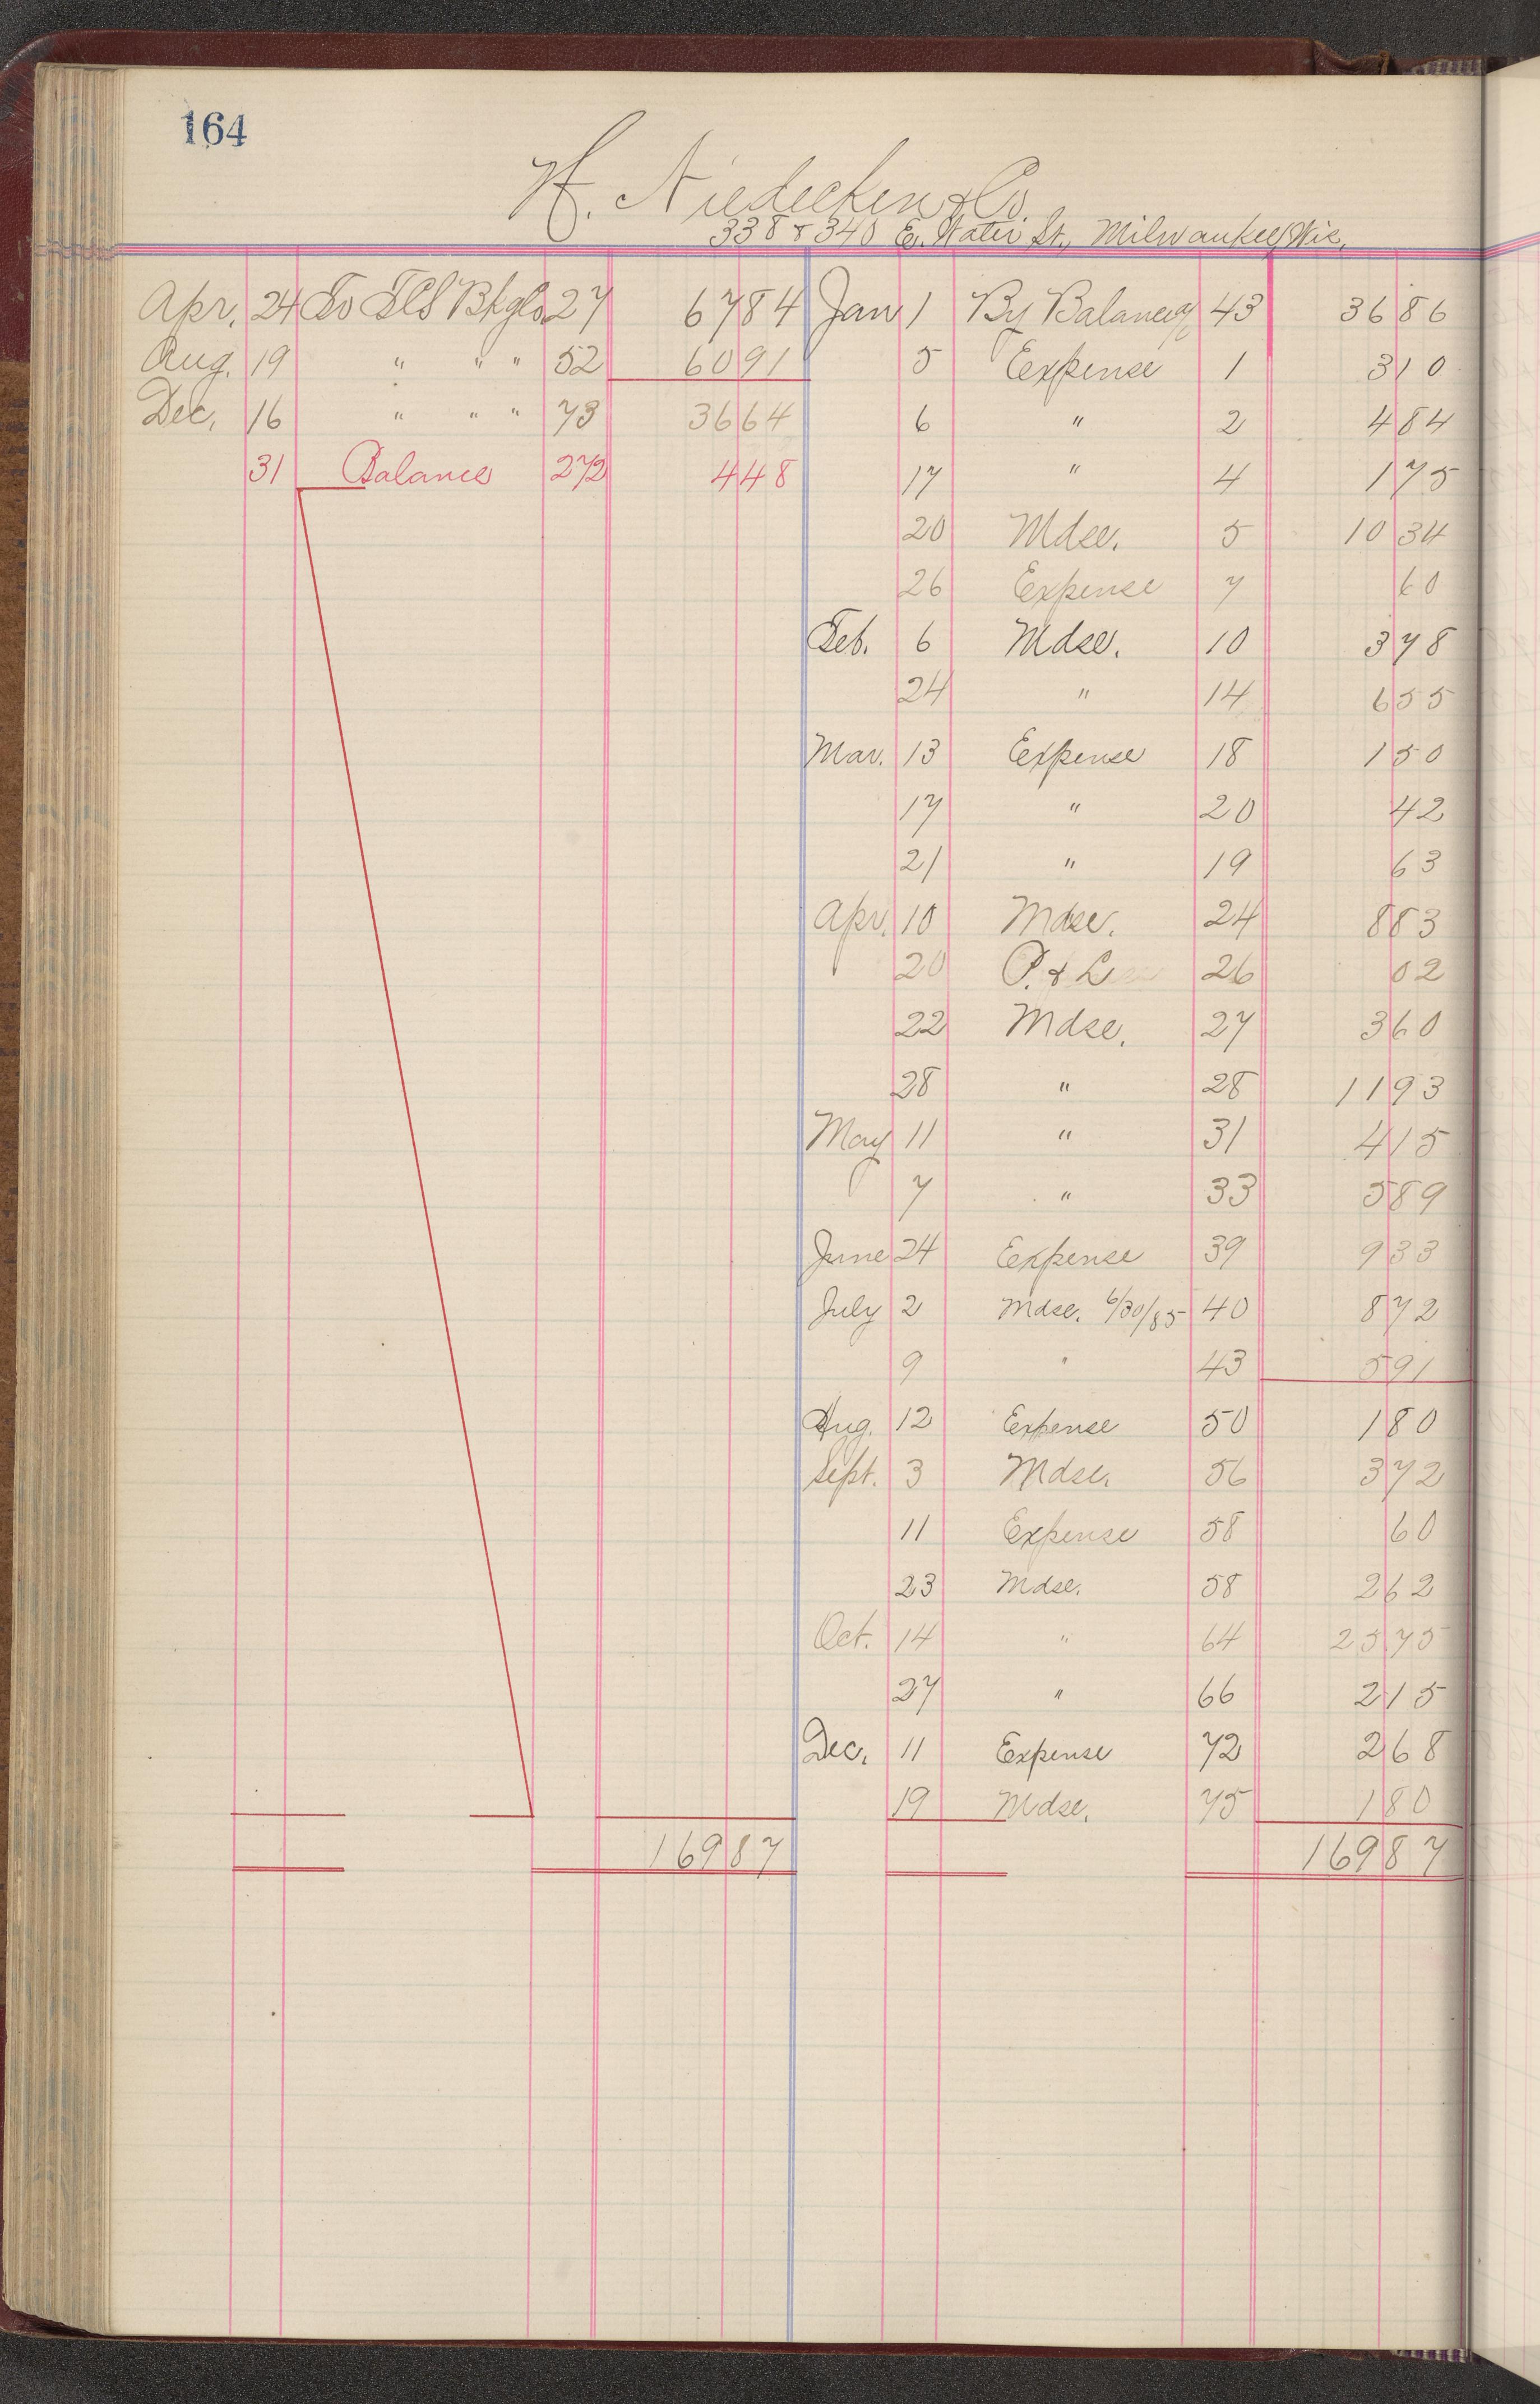 164
H. Niedecken & Co
338 & 340 E. Water St., Milwaukee, Wis.
Apr. 24 To 27 67 84
Aug. 19 " " " 52 60 91
Dec. 16 " " " 73 36 64
31 Balance 272 4 48
16987
Jan 1 By Balance 43 36 86
5 Expense 1 3 10
6 " 2 4 84
17 " 4 1 75
20 Mdse. 5 10 34
26 Expense 7 60
Feb. 6 Mdse. 10 3 78
24 " 14 6 55
Mar. 13 Expense 18 1 50
17 " 20 42
21 " 19 63
Apr. 10 Mdse. 24 8 83
20 P. & L 26 02
22 Mdse. 27 3 60
28 " 28 11 93
May 11 " 31 4 15
7 " 33 5 89
June 24 Expense 39 9 33
July 2 Mdse. 6/30/85 40 8 72
9 " 43 5 91
Aug. 12 Expense 50 1 80
Sept. 3 Mdse. 56 3 72
11 Expense 58 60
23 Mdse. 58 2 62
Oct. 14 " 64 23 75
27 " 66 2 15
Dec. 11 Expense 72 2 68
19 Mdse. 75 1 80
169 87